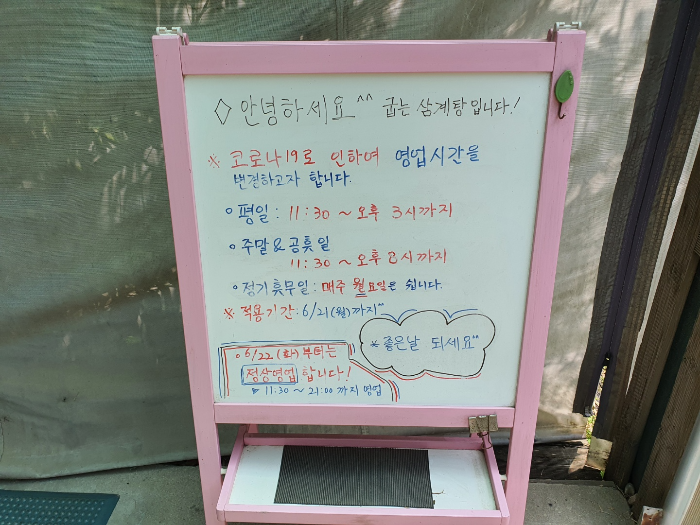 ◇ 안녕하세요^^ 굽는 삼계탕입니다!
※ 코로나19로 인하여 영업시간을
변경하고자 합니다.
∘ 평일 : 11:30 ~ 오후 3시까지
∘ 주말 & 공휴일
11:30 ~ 오후 8시까지
∘ 정기휴무일 : 매주 월요일은 쉽니다.
※ 적용기간 : 6/21(월)까지"
* 좋은날 되세요"
∘ 6/22(화)부터는
정상영업 합니다!
▷ 11:30 ~ 21:00 까지 영업